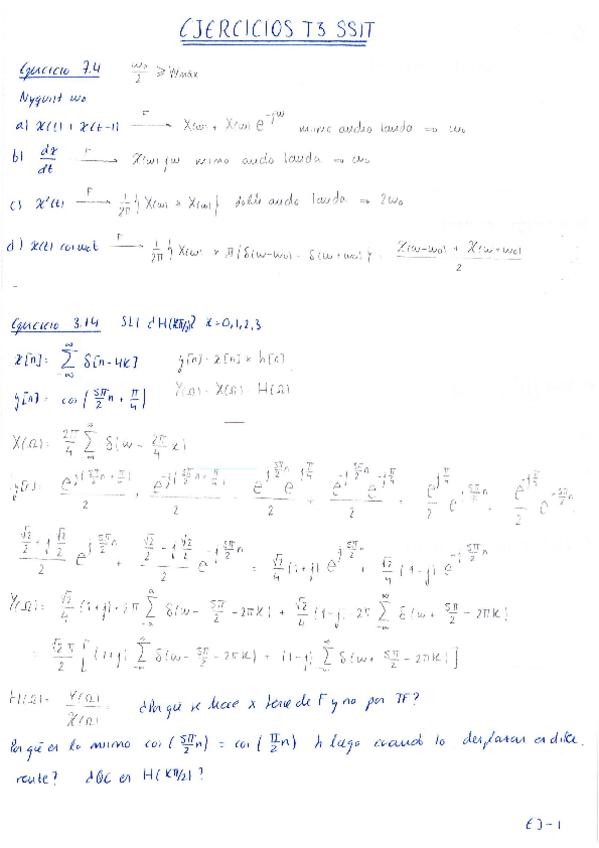 EJERCICIOS T3 SSIT
Ejercicio 7.4 ω₀/2 ≥ Wmáx
Nyquist ω₀
a) x(t) + x(t-1) —F→ X(ω) + X(ω) e^-jω mismo ancho banda ⇒ ω₀
b) dx/dt —F→ X(ω) jω mismo ancho banda ⇒ ω₀
c) x²(t) —F→ 1/2π { X(ω) * X(ω) } doble ancho banda ⇒ 2ω₀
d) x(t) cos ω₀t —F→ 1/2π { X(ω) * π { δ(ω-ω₀) + δ(ω+ω₀) } = X(ω-ω₀) + X(ω+ω₀) / 2
Ejercicio 3.14 SLI ¿H(Kπ/2)? K=0,1,2,3
x[n] = Σ δ[n-4K] y[n] = x[n] * h[n]
y[n] = cos(5π/2 n + π/4) Y(Ω) = X(Ω) · H(Ω)
X(Ω) = 2π/4 Σ δ(ω - 2π/4 K)
y[n] = e^j(5π/2 n + π/4) / 2 + e^-j(5π/2 n + π/4) / 2 = e^j5π/2 n e^jπ/4 / 2 + e^-j5π/2 n e^-jπ/4 / 2 = e^jπ/4 / 2 e^j5π/2 n + e^-jπ/4 / 2 e^-j5π/2 n
√2/2 + j√2/2 / 2 e^j5π/2 n + √2/2 - j√2/2 / 2 e^-j5π/2 n = √2/4 (1+j) e^j5π/2 n + √2/4 (1-j) e^-j5π/2 n
Y(Ω) = √2/4 (1+j) · 2π Σ δ(ω - 5π/2 - 2πK) + √2/4 (1-j) · 2π Σ δ(ω + 5π/2 - 2πK)
= √2 π/2 [ (1+j) Σ δ(ω - 5π/2 - 2πK) + (1-j) Σ δ(ω + 5π/2 - 2πK) ]
H(Ω) = Y(Ω)/X(Ω) = ¿Por qué se hace x serie de F y no por TF?
Por qué es lo mismo cos(5π/2 n) = cos(π/2 n) y luego cuando lo desplazas es dife
rente? ¿QC es H(Kπ/2)?
EJ-1